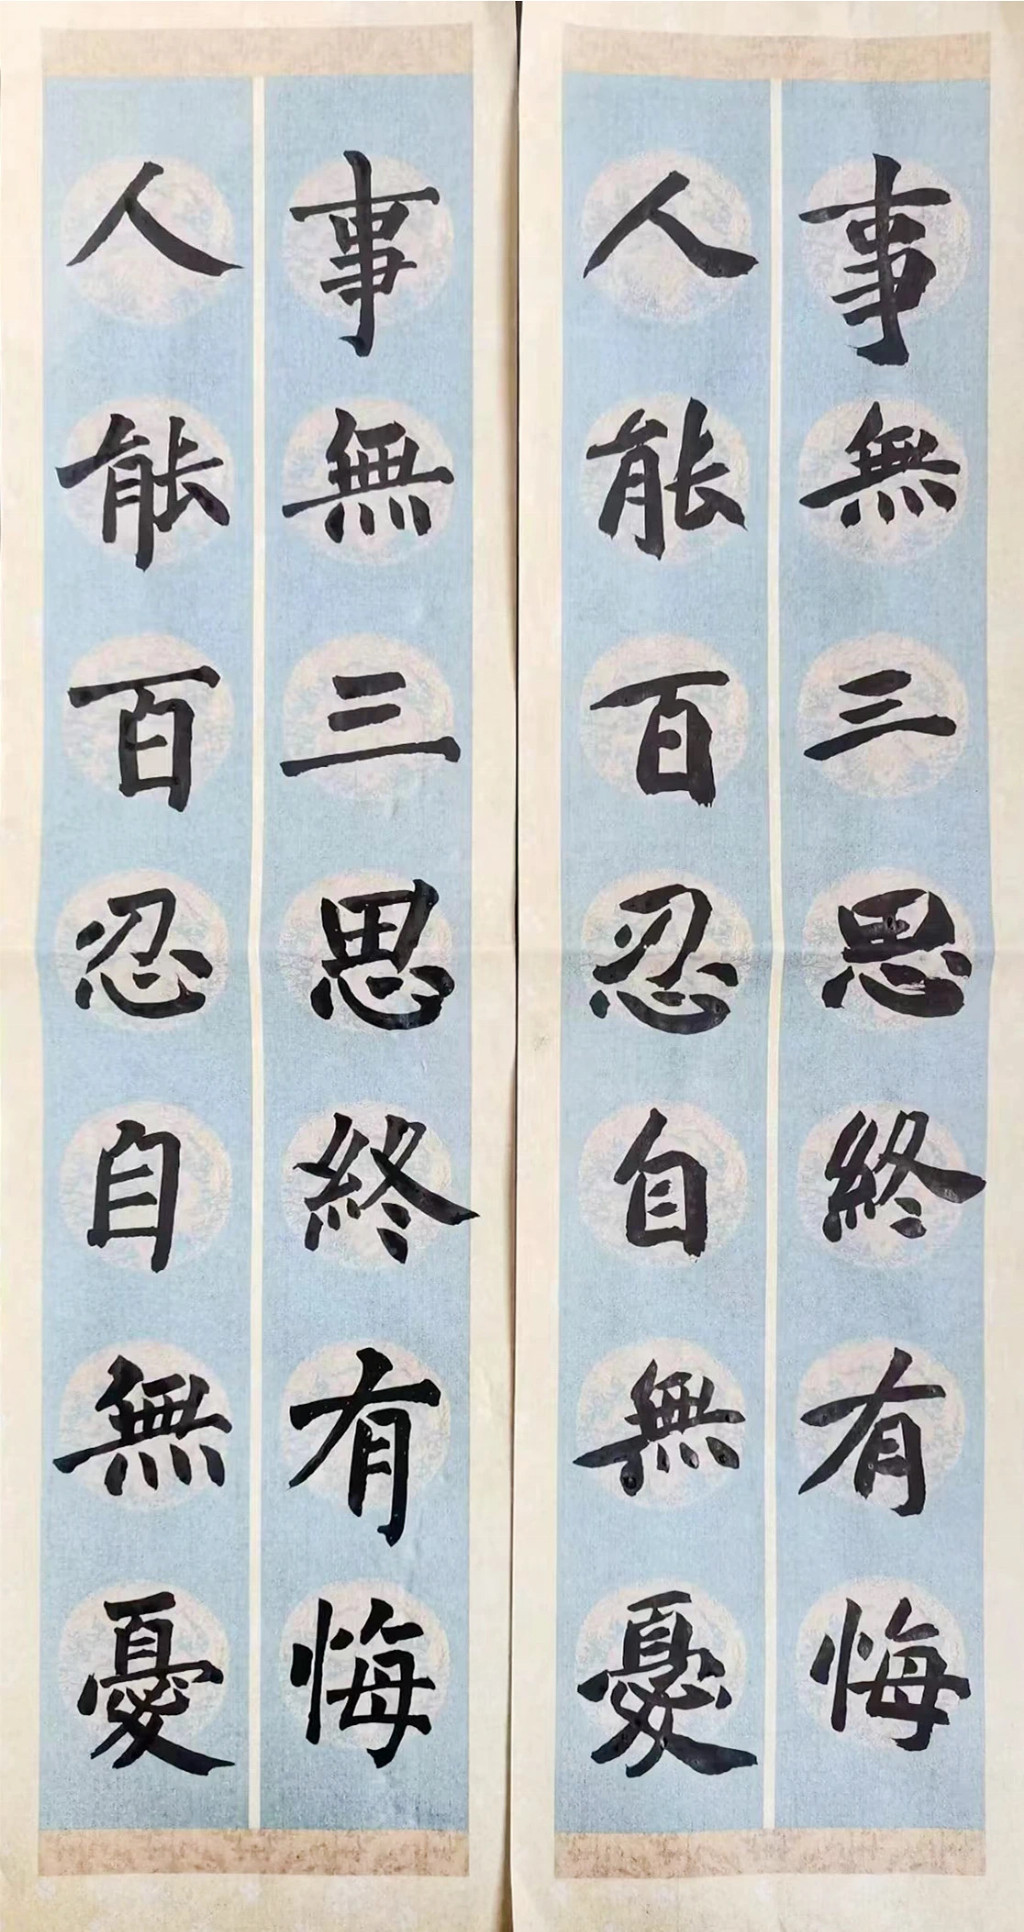 事無三思終有悔
人能百忍自無憂
事無三思終有悔
人能百忍自無憂